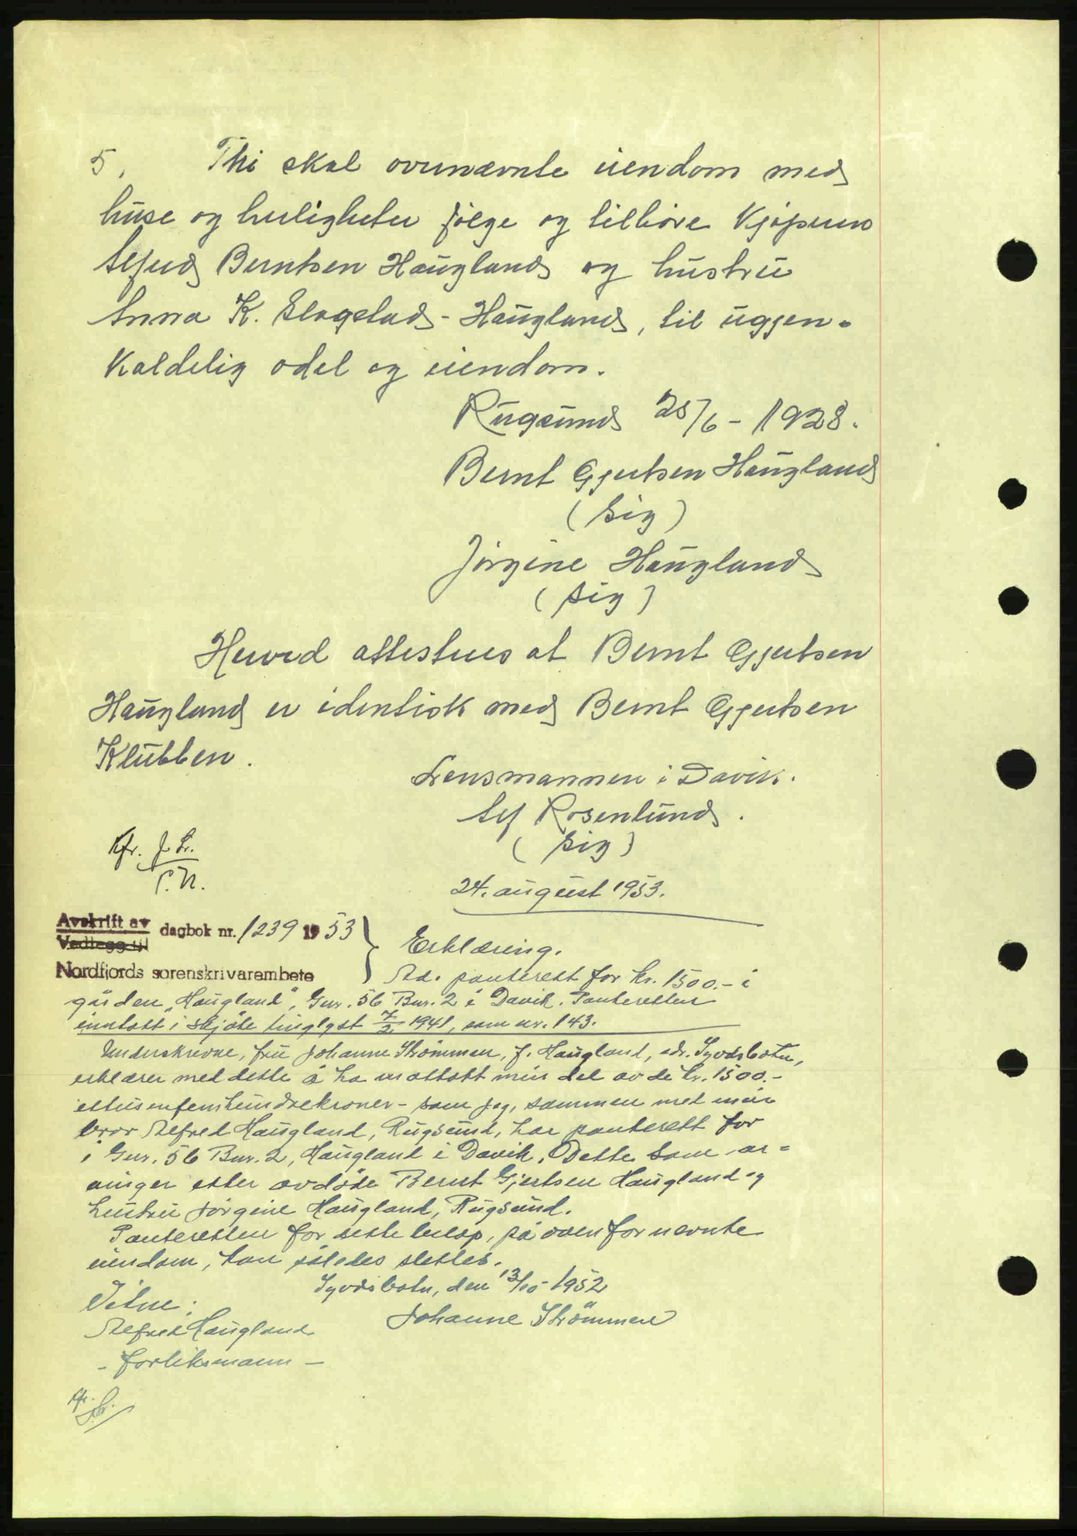 5. Thi skal ovennævnte eiendom med
huse og herligheter følge og tilhøre Kjøperen
Alfred Berntsen Haugland og hustru
Anna K. Elogstad-Haugland, til ugjen-
kaldelig odel og eiendom.
Rugsund 25/6 - 1928.
Bernt Gjertsen Haugland
(sig)
Jørgine Haugland
(sig)
Herved attesteres at Bernt Gjertsen
Haugland er identisk med Bernt Gjertsen
Klubben.
Lensmannen i Davik.
Alf Rosenlund.
(sig)
Kfr. J. L.
P.N.
24. august 1953.
Avskrift av
Vedlegg til
dagbok nr. 1239 1953
Nordfjords sorenskrivarembete
Erklæring.
Ad. panterett for kr. 1500.- i
gården "Haugland", Gnr. 56 Bnr. 2 i Davik. Panteretten
inntatt i skjøte tinglyst 7/2 1941, som nr. 143.
Underskrevne, fru Johanne Strømmen, f. Haugland, adr. Syvdsbotn,
erklærer med dette å ha mottatt min del av de kr. 1500.-
ettusenfemhundrekroner - som jeg, sammen med min
bror Alfred Haugland, Rugsund, har panterett for
i Gnr. 56 Bnr. 2, Haugland i Davik. Dette som ar-
vinger etter avdøde Bernt Gjertsen Haugland og
hustru Jørgine Haugland, Rugsund.
Panteretten for dette beløp, på ovenfornevnte
eiendom, kan således slettes.
Syvdsbotn, den 13/10 - 1952
Vitne:
Johanne Strömmen
Alfred Haugland
- forliksmann -